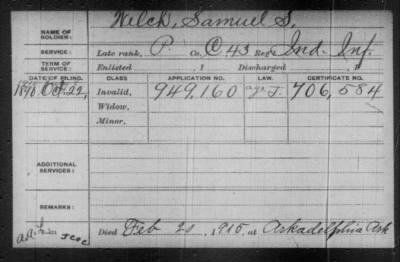 Welch, Samuel S.
NAME OF SOLDIER:
SERVICE: Late rank, P. Co. C 43 Reg't Ind. Inf.
TERM OF SERVICE: Enlisted , 1 Discharged , 1
DATE OF FILING. CLASS APPLICATION NO. LAW. CERTIFICATE NO.
1890 Oct. 22, Invalid, 949,160 706,584
Widow,
Minor,
ADDITIONAL SERVICES:
REMARKS:
Died Feb 1915, at Arkadelphia Ark